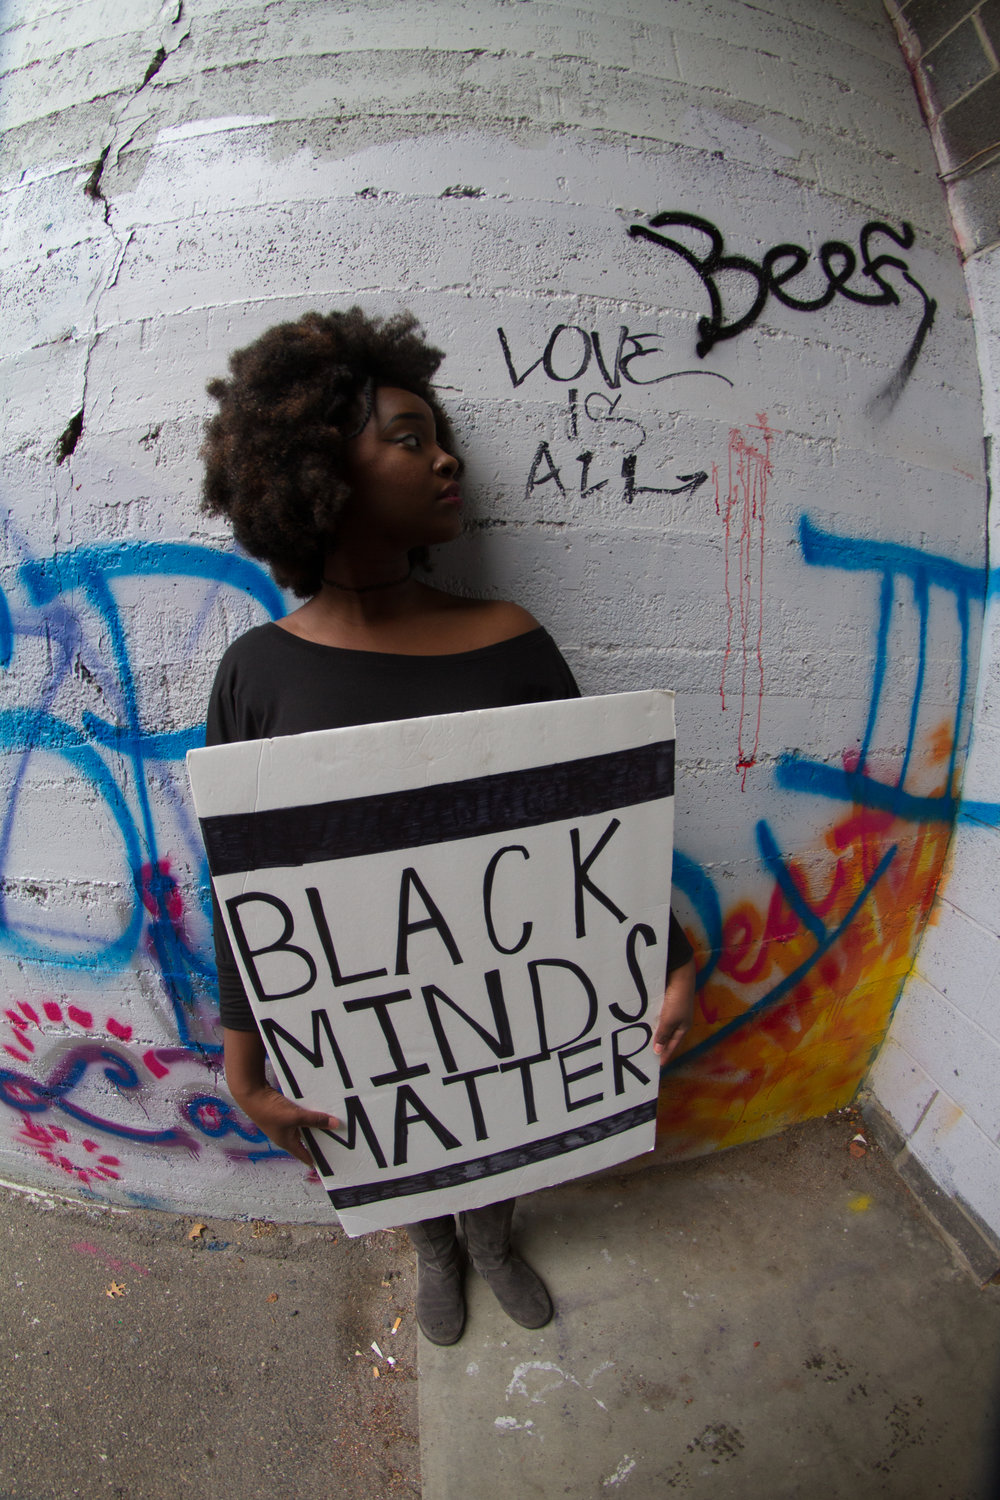 Beef
LOVE
IS
ALL
BLACK
MINDS
MATTER